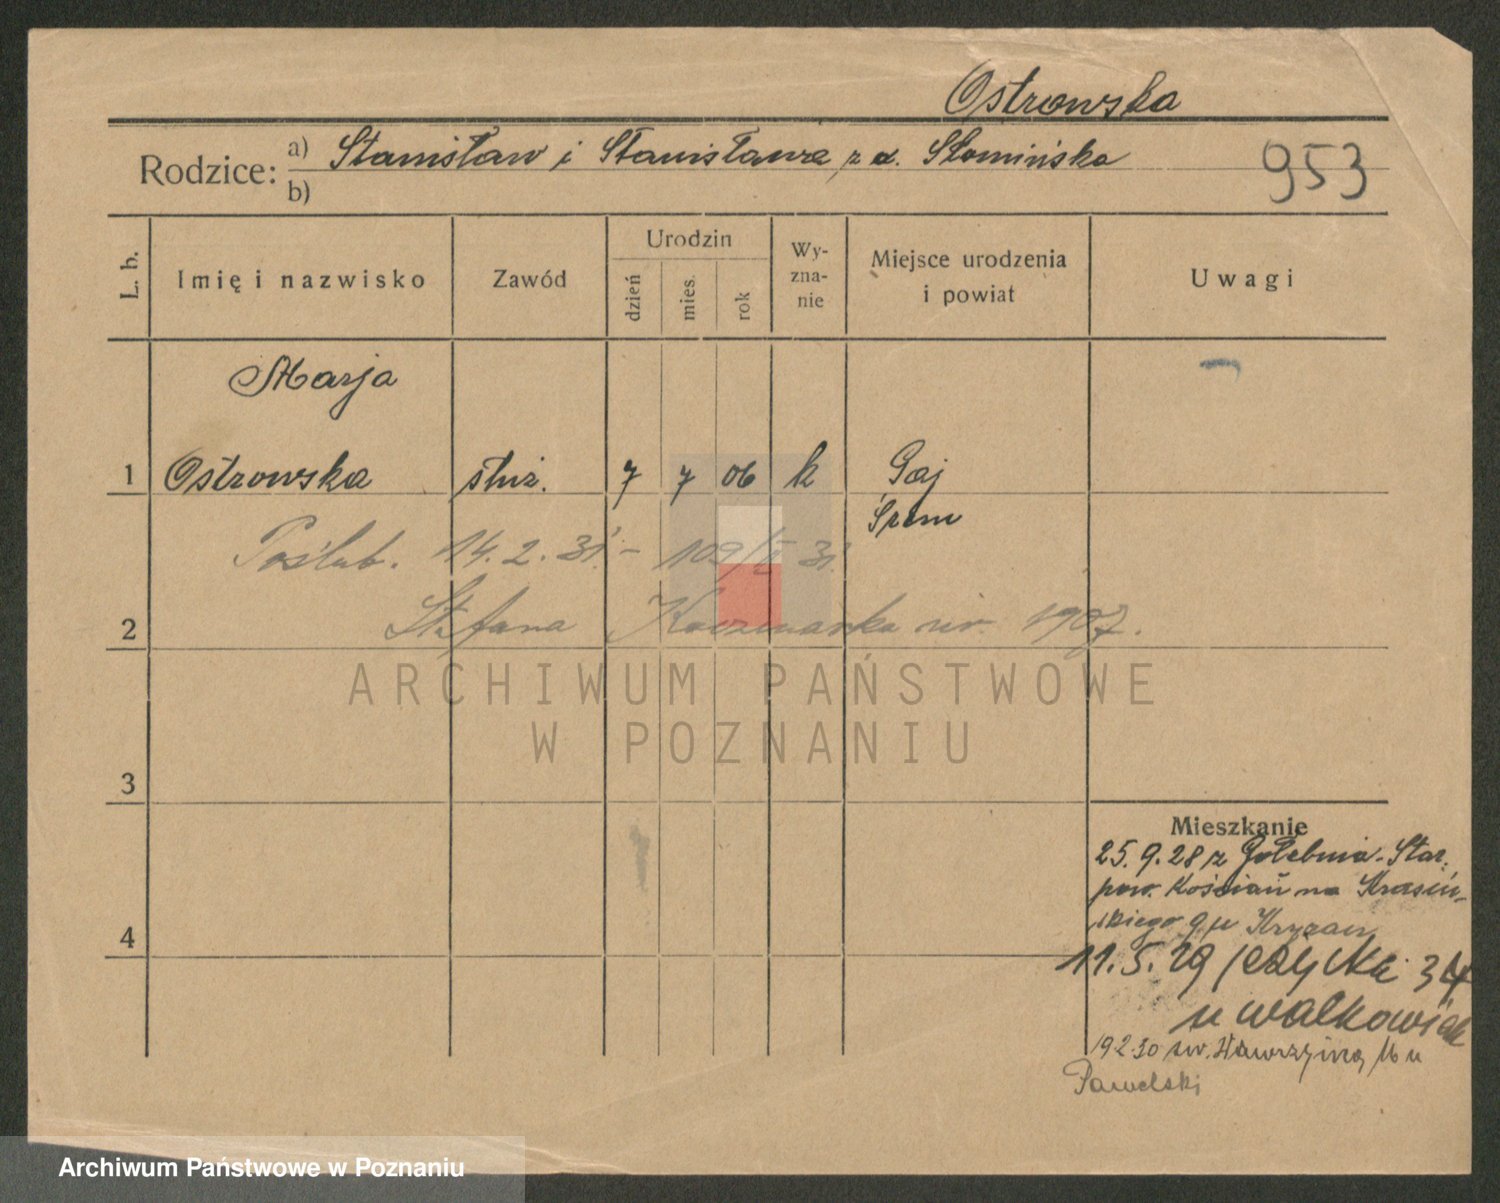 Ostrowska
Rodzice: a) Stanisław i Stanisława z d. Słomińska
b)
953
L. b.
Imię i nazwisko
Zawód
Urodzin
dzień
mies.
rok
Wy-
zna-
nie
Miejsce urodzenia
i powiat
Uwagi
Marja
1 Ostrowska służ. 7 7 06 k Gaj
Śrem
Poślub. 14.2.31. – 109/II 31.
2 Stefana Kaczmarka ur. 1907.
ARCHIWUM PAŃSTWOWE
W POZNANIU
3
Mieszkanie
25.9.28 z Gołębina-Star.
pow. Kościań na Krasiń-
4 skiego 9 u
11.5.29 Jeżycka 34
u Walkowiak
19 2 30 św. Wawrzyńca 16 u
Pawelski
Archiwum Państwowe w Poznaniu